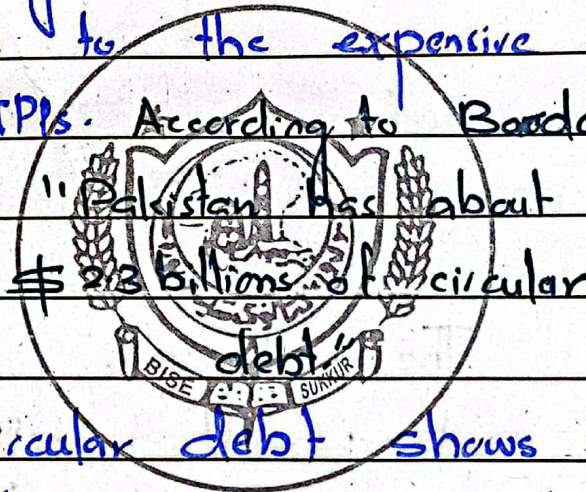 to the expensive
IPPs. According to
"Pakistan has about
$ 23 billions of circular
debt."
BISE SUKKUR
circular debt shows